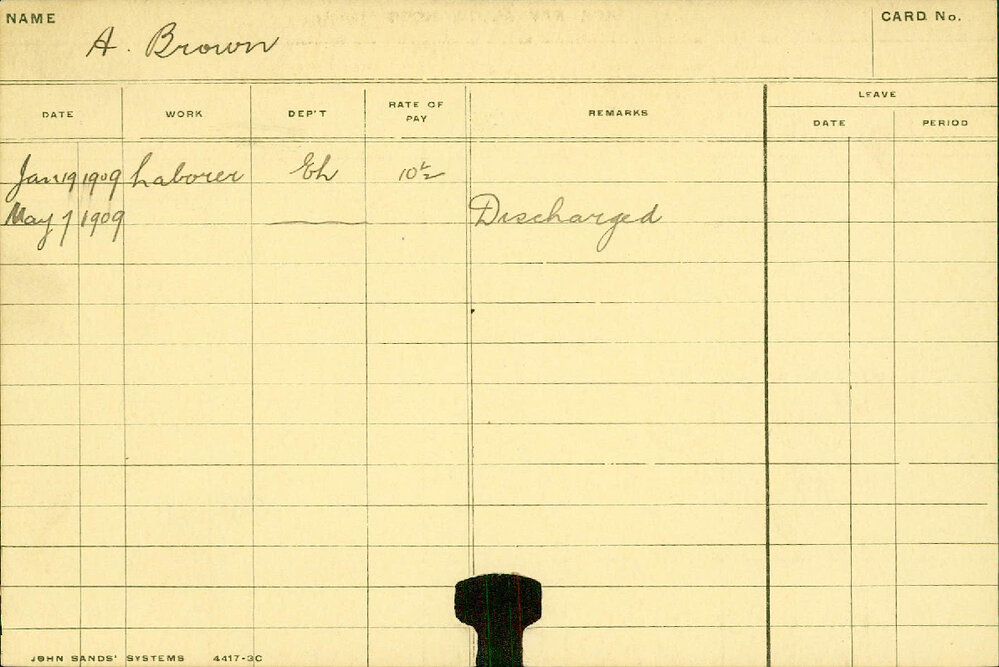 NAME A. Brown CARD No.
DATE WORK DEP'T RATE OF PAY REMARKS LEAVE
DATE PERIOD
Jan 19 1909 Laborer Eh 10½
May 7 1909 Discharged
JOHN SANDS' SYSTEMS 4417-3C